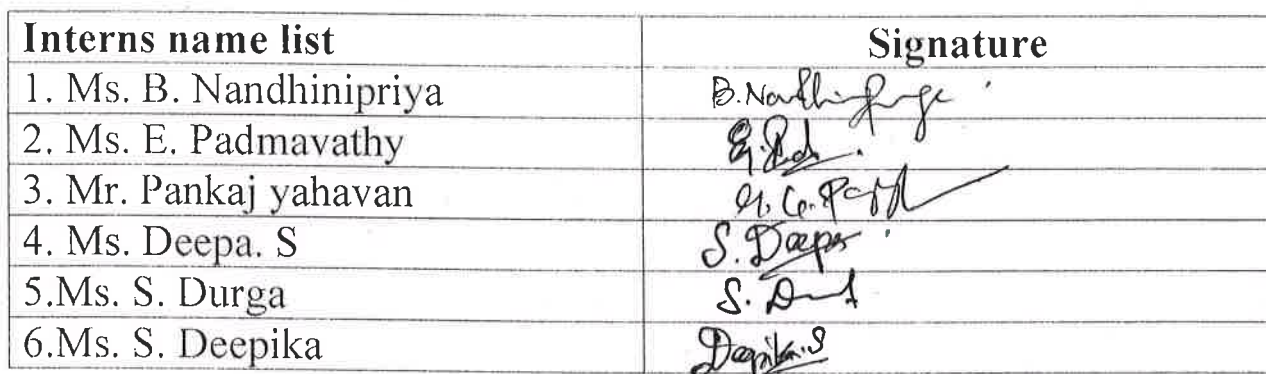 Interns name list Signature
1. Ms. B. Nandhinipriya B.Nandhinipriya
2. Ms. E. Padmavathy
3. Mr. Pankaj yahavan
4. Ms. Deepa. S S. Deepa
5.Ms. S. Durga S.
6.Ms. S. Deepika Deepika.S